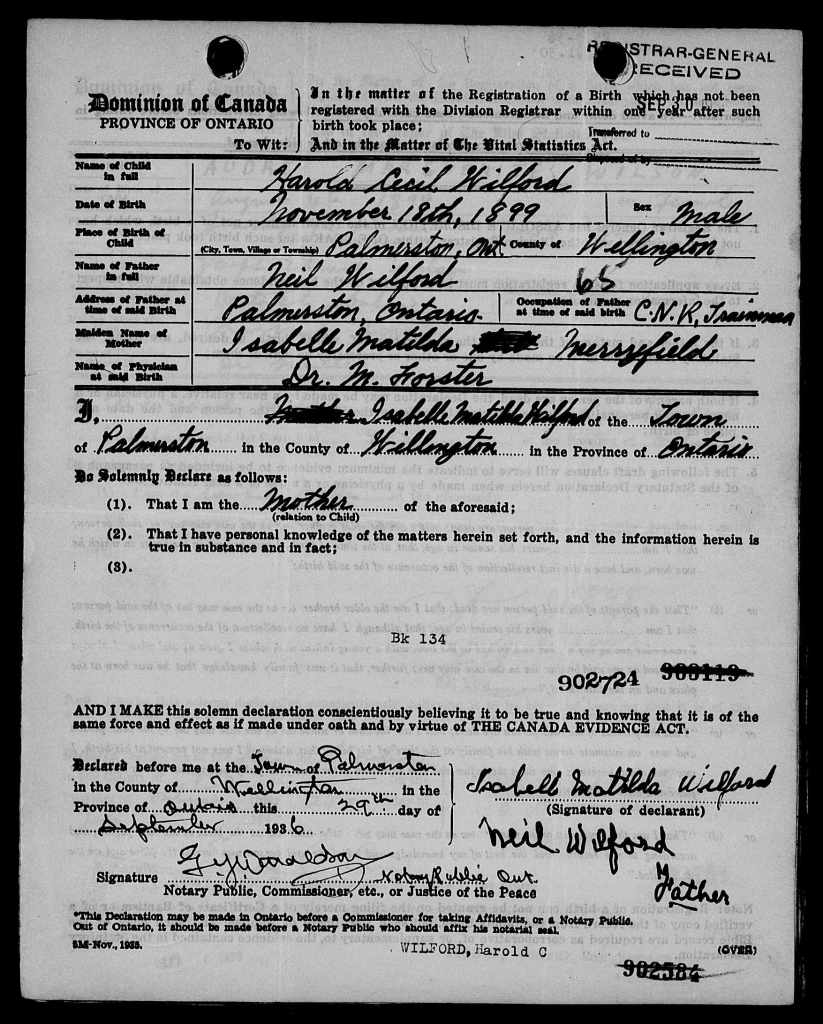 REGISTRAR-GENERAL
RECEIVED
SEP 30
Dominion of Canada
PROVINCE OF ONTARIO
To Wit:
In the matter of the Registration of a Birth which has not been
registered with the Division Registrar within one year after such
birth took place;
Transferred to
And in the Matter of The Vital Statistics Act.
Name of Child
in full
Harold Cecil Wilford
Date of Birth
November 18th, 1899
Sex
Male
Place of Birth of
Child
(City, Town, Village or Township) Palmerston, Ont. County of Wellington
Name of Father
in full
Neil Wilford
65
Address of Father at
time of said Birth
Palmerston, Ontario.
Occupation of Father
at time of said birth
C.N.R, Trainman
Maiden Name of
Mother
Isabelle Matilda Merryfield
Name of Physician
at said Birth
Dr. M. Forster
I, Isabelle Matilda Wilford of the Town
of Palmerston in the County of Willington in the Province of Ontario
Do Solemnly Declare as follows:
(1). That I am the Mother of the aforesaid;
(relation to Child)
(2). That I have personal knowledge of the matters herein set forth, and the information herein is
true in substance and in fact;
(3).
Bk 134
902724 988119
AND I MAKE this solemn declaration conscientiously believing it to be true and knowing that it is of the
same force and effect as if made under oath and by virtue of THE CANADA EVIDENCE ACT.
Declared before me at the Town of Palmerston
in the County of Wellington in the
Province of Ontario this 29th day of
September 1936
Isabell Matilda Wilford
(Signature of declarant)
Neil Wilford
Father
Signature G.Y. Donaldson Notary Public Ont.
Notary Public, Commissioner, etc., or Justice of the Peace
*This Declaration may be made in Ontario before a Commissioner for taking Affidavits, or a Notary Public.
Out of Ontario, it should be made before a Notary Public who should affix his notarial seal.
5M-Nov., 1935.
WILFORD, Harold C
(OVER)
902584